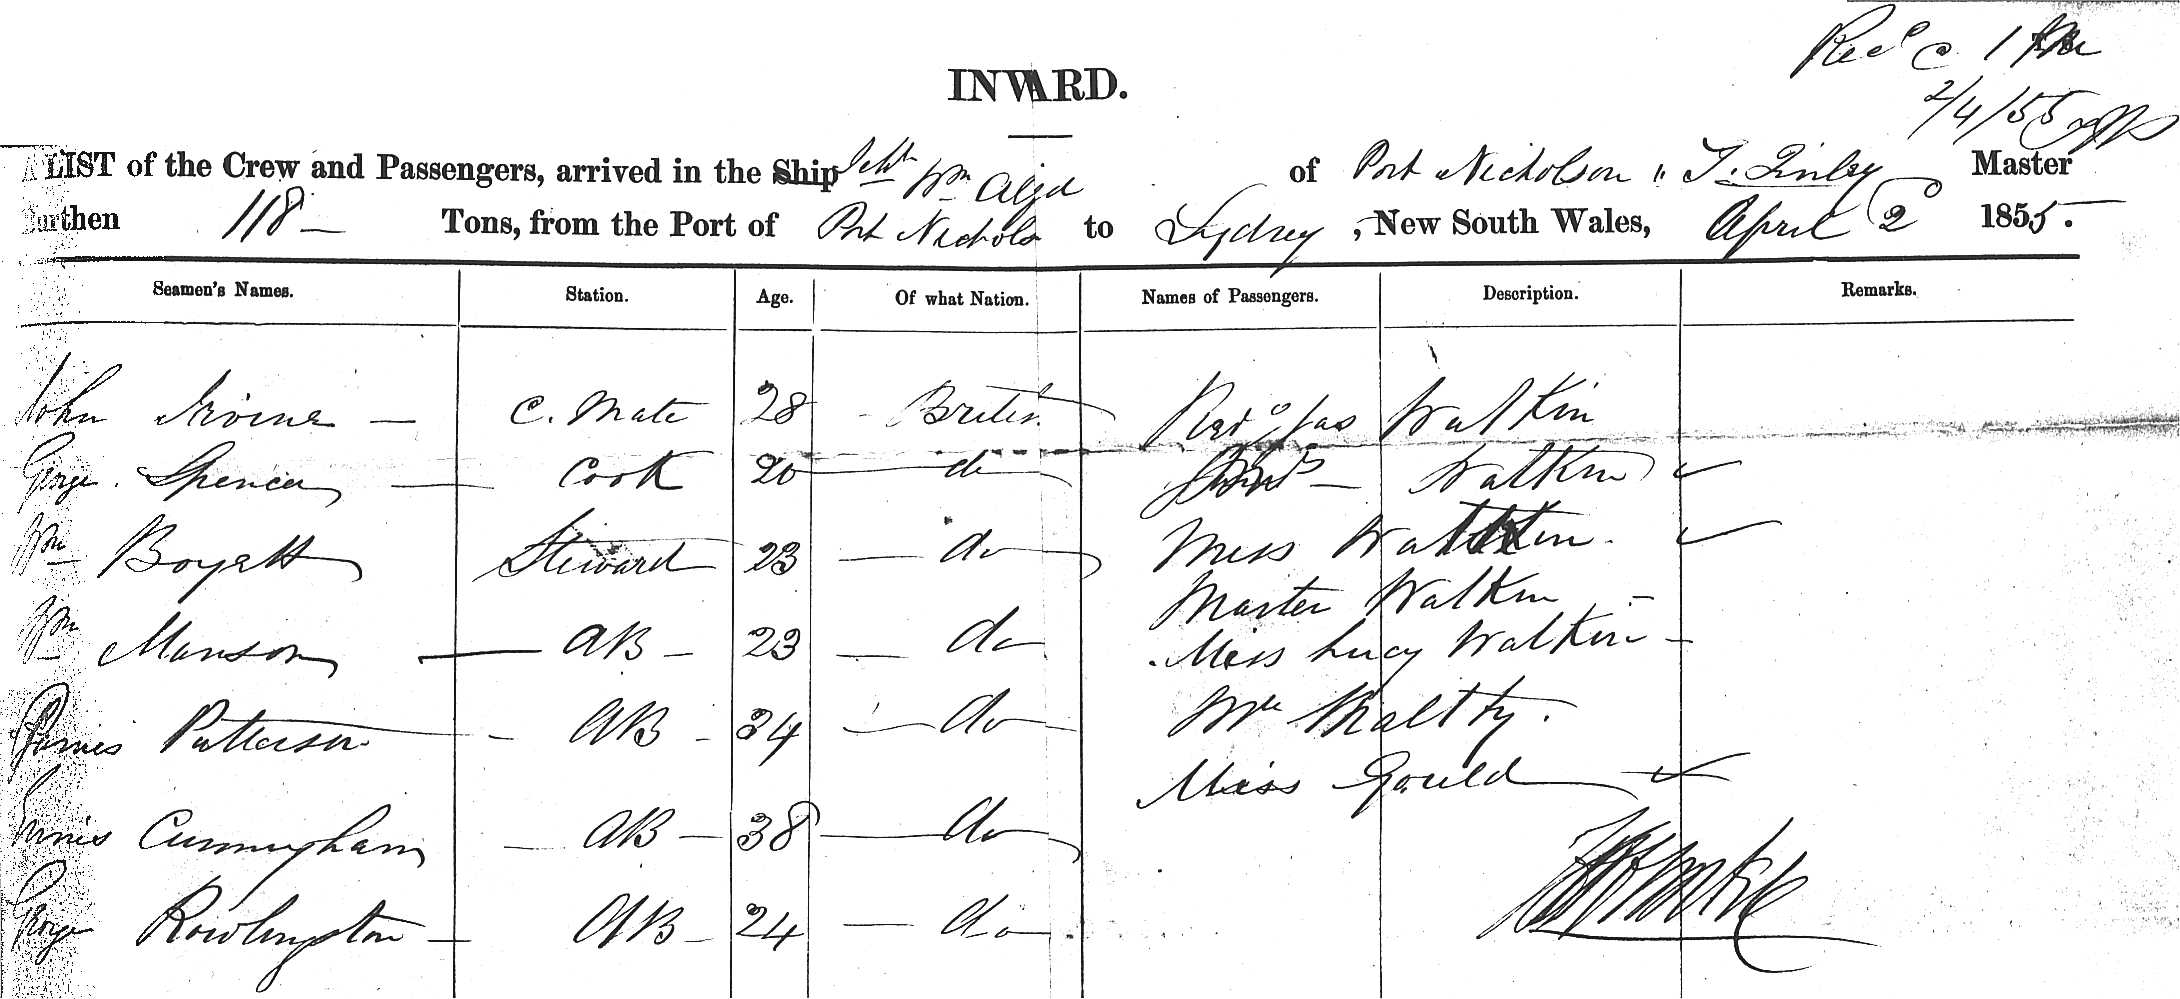 Recd 1
2/4/55
INWARD.
A LIST of the Crew and Passengers, arrived in the Ship Wm of Port Nicholson " T. Finlay Master
Burthen 118 Tons, from the Port of Port Nichols to Sydney, New South Wales, April 2d 1855.
Seamen's Names. Station. Age. Of what Nation. Names of Passengers. Description. Remarks.
John Irvine — C. Mate 28 - British Revd Jas Watkin
George Spencer — Cook 20 — do — Watkin ✓
Wm Boyatt Steward 23 — do Miss Watkin. ✓
Master Watkin —
Wm Manson — AB — 23 — do Miss Lucy Watkin —
James Patterson - AB - 34 — do — Mr Maltby.
Miss Gould — ✓
Cunningham — AB — 38 — do
George Rowlingston — AB — 24 — do